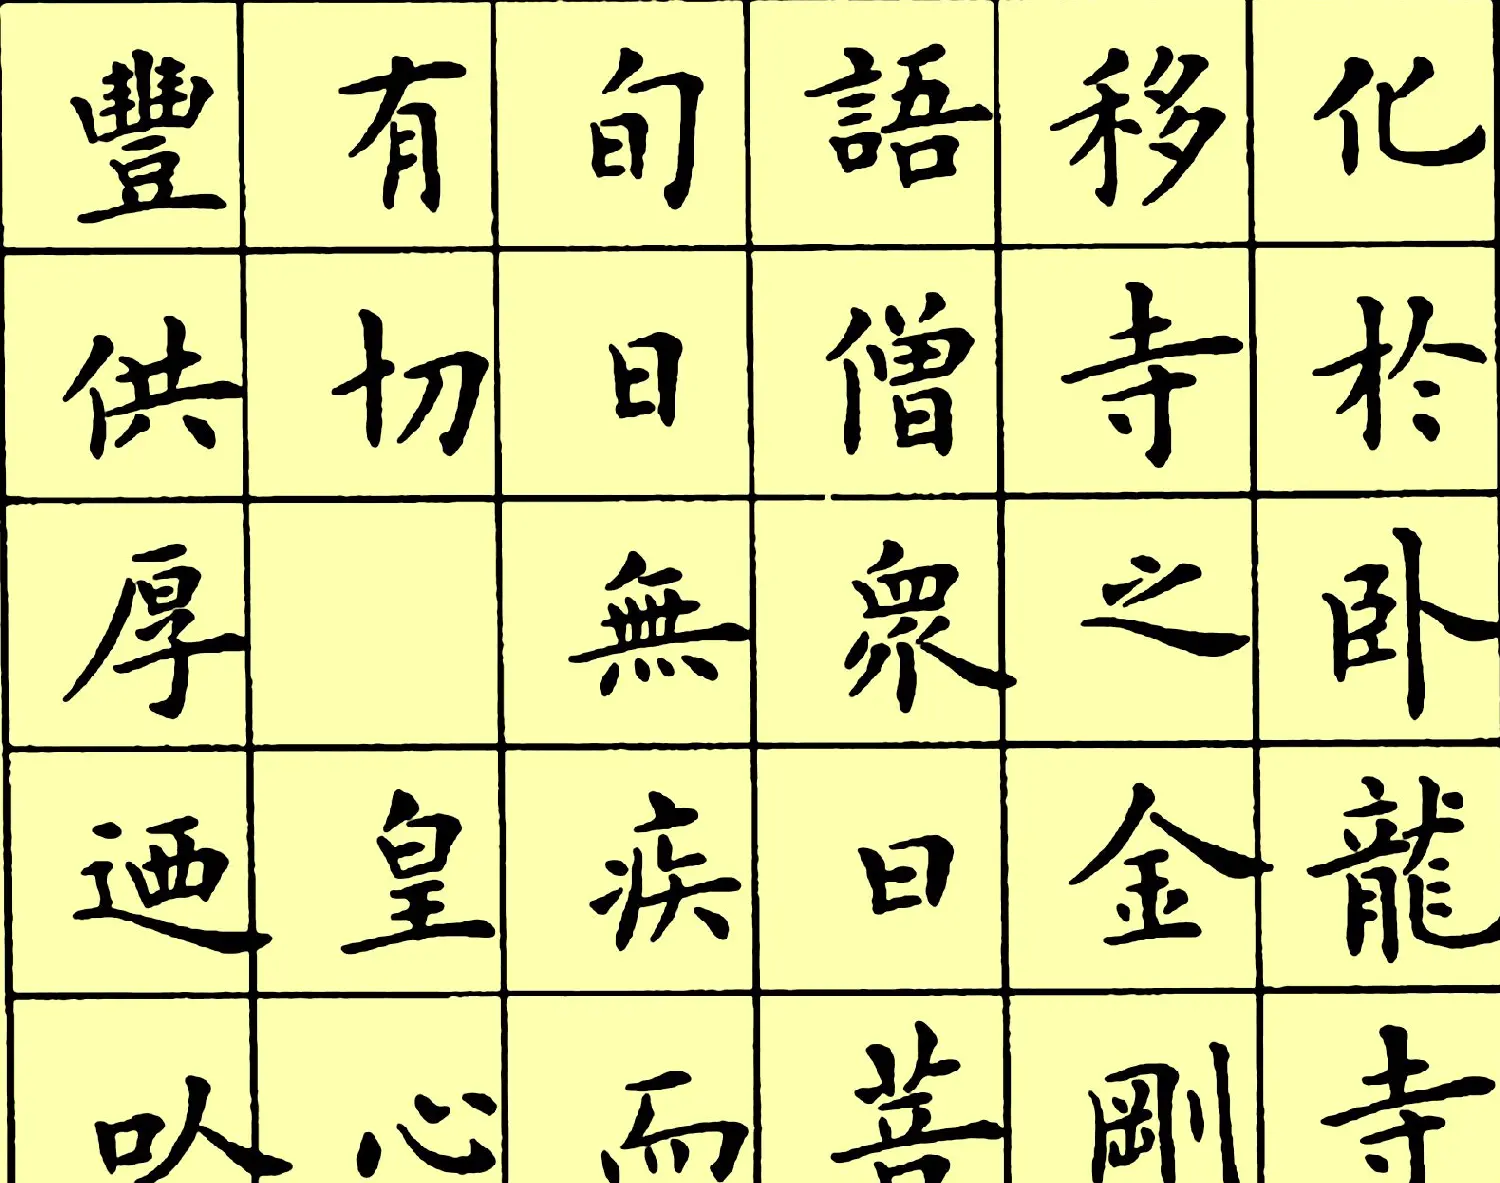 化於卧龍寺
移寺之金剛
語僧眾曰菩
旬日無疾而
有切 皇心
豐供厚迺㕥